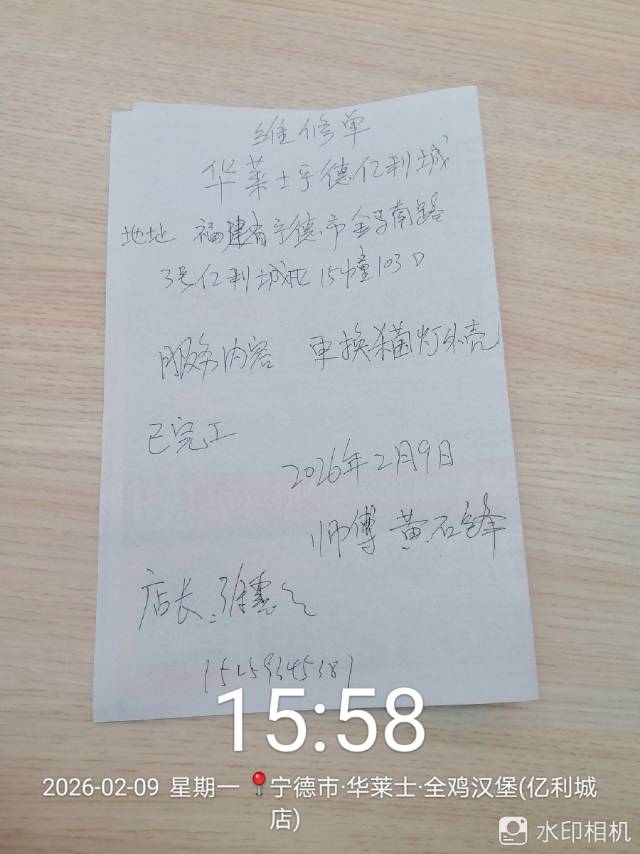 维修单
华莱士宁德亿利城
地址 福建省宁德市金马南路
3号亿利城北15幢103D
服务内容 更换杀菌灯外壳
已完工
2026年2月9日
师傅 黄石锋
店长:
15:58
2026-02-09 星期一 📍宁德市·华莱士·全鸡汉堡(亿利城
店)
水印相机